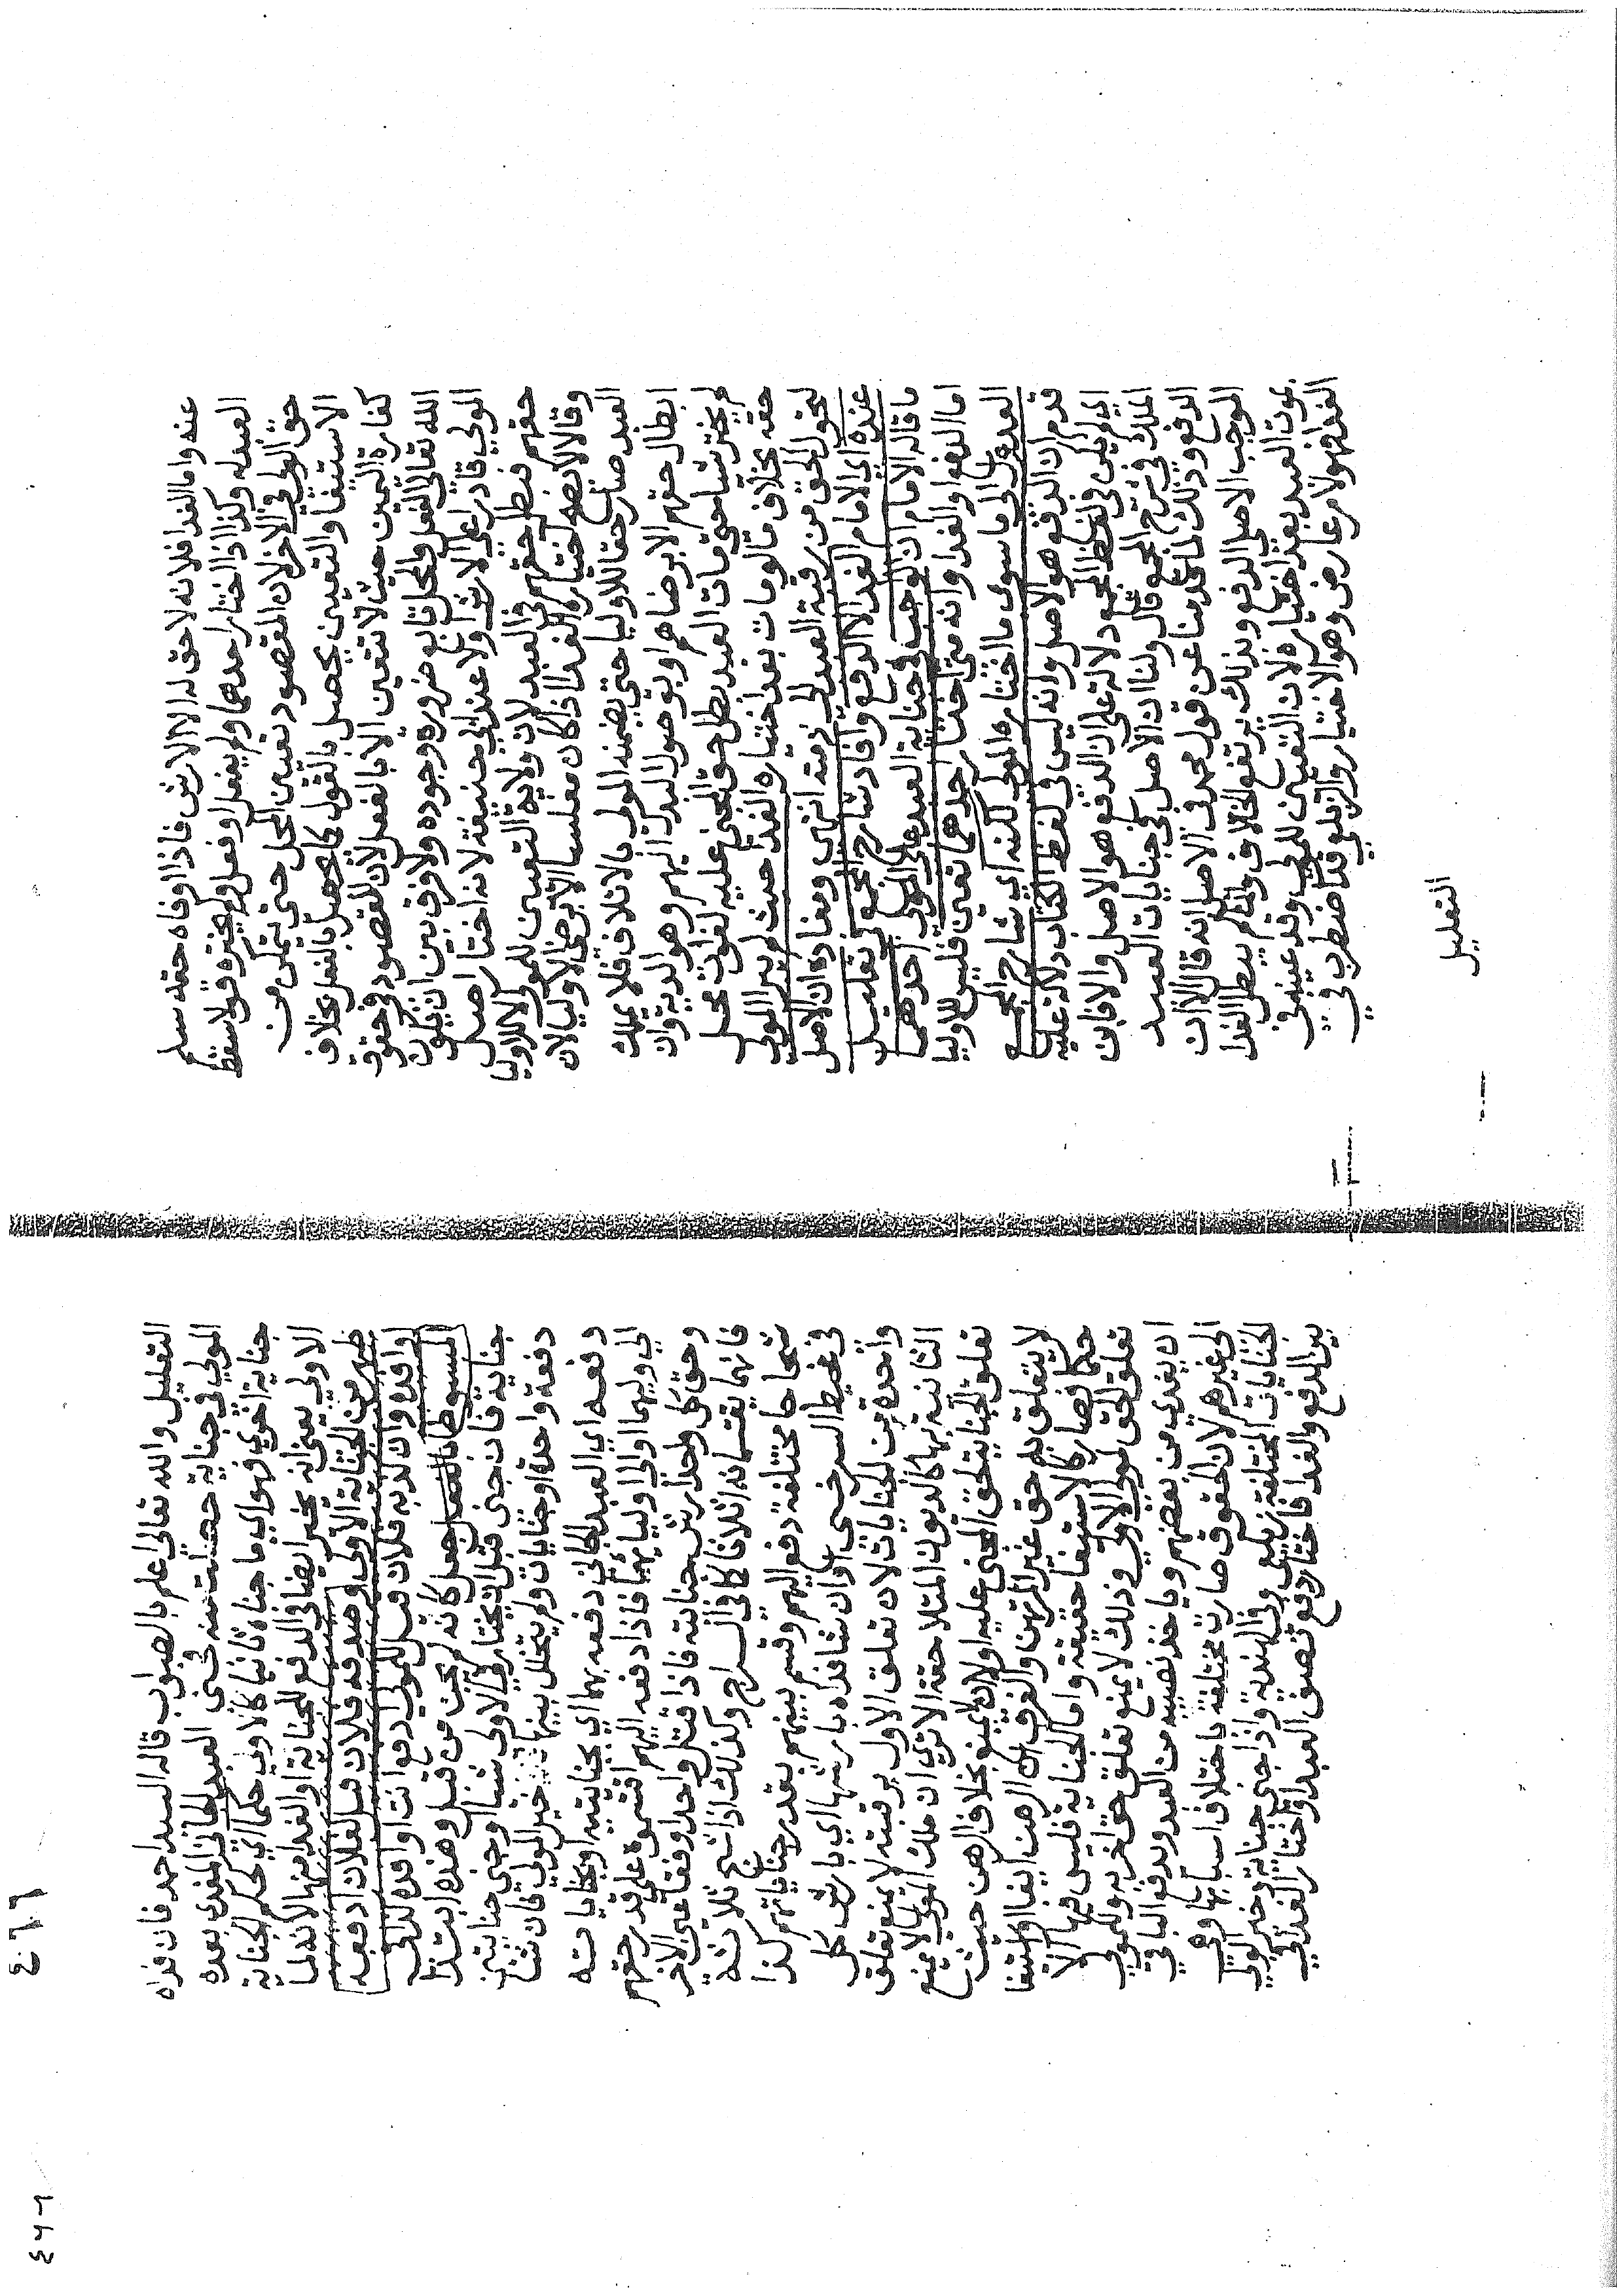 عنه واما الفدا فلانه لا حق له الا الارش فاذا اوفاه حقه سلم
العبد له وكذا اذا اختار احدهما ولم يفعل او فعل ولم يختره قولا سقط
حق المولى في الاخر لان المقصود تعيين المحل حتى يتمكن من
الاستيفا والتعيين يحصل بالقول كما يحصل بالفعل بخلاف
كفارة اليمين حيث لا تتعين الا بالفعل لان المقصود في حقوق
الله تعالى الفعل والمحل تابع ضرورة وجوده ولا فرق بين ان يكون
المولى قادرا على الارش او لا عند ابي حنيفة لانه اختار اصل
حقهم فبطل حقهم في العبد لان ولاية التعيين للمولى لا للاوليا
وقالا لا يصح اختياره الفدا اذا كان مفلسا الا برضى الاوليا لان
العبد صار حقا للاوليا حتى يضمنه المولى بالاتلاف فلا يملك
ابطال حقهم الا برضاهم او بوصول البدل اليهم وهو الدية وان
لم يختر شيا حتى مات العبد بطل حق المجني عليه لفوات محل
حقه بخلاف ما لو مات بعد اختياره الفدا حيث لم يبرا المولى
لتحول الحق من رقبة العبد الى ذمته انتهى ومفاده ان الاصل
عنده اي الامام الفدا لا الدفع وافاد شارح المجمع في تعليل
ما قاله الامام ان الواجب في جناية العبد على المولى احدهما
اما الدفع او الفدا وانه متى اختار احدهما تعين فليس للاوليا
العدول الى ما سوى ما اختاره المولى لكنه اي شارح المجمع
قدم ان الدفع هو الاصل وانه ليس في لفظ الكتاب دلالة عليه
اي لم يكن في لفظ المجمع دلالة على ان الدفع هو الاصل والا فابن
الملك في شرح المجمع قال ولنا ان الاصل في جنايات العبيد
الدفع وذلك لما قدمنا عن قول محمد في الاصل انه قال الا ان
الموجب الاصلي الدفع وبذلك يرتفع الخلاف ولم يبطل الفدا
بموت العبد بعد اختياره لان التعيين للمولى وقد عينه في
الفدا فهو لامر عارض وهو الاختيار والزيلعي قد اضطرب في
التعليل
التعليل والله تعالى اعلم بالصواب قاله السيد احمد فان فداه
المولى في جناية حصلت منه فجنى العبد الجاني المفدي بعده
جناية اخرى فهو اي ما جناه ثانيا كالاولى حكما اي حكم الجناية
الاولى يعني انه يخير ايضا في الدفع للجناية او الفدا منها لانه لما
طهر من الجناية الاولى وصدقه فلان قبل لفلان ادفعه
او افده وان كذبه فلان قيل للمولى ادفع انت او افده كذا في
المبسوط جعل كانه لم يجن من قبل وهذه ابتدا
جناية فان جنى قبل ان يختار في الاولى شيا او جنى جنايتين
دفعة واحدة او جنايات ولم يتخلل بينهما خير المولى فان شا
دفعه اي العبد الجاني دفعه بهما اي بجنايتيه او بجناياته
الى وليهما او الى اوليائهما فاذا دفعه اليهم اقتسموه على قدر حقهم
وحق كل واحد ارش جنايته فاذا قتل واحدا وفقا عين الاخر
فانهما يقتسمانه اثلاثا كما في السراج وكذلك اذا شج ثلاثة
شجاجا مختلفة دفع اليهم وقسم بينهم بقدر جناياتهم كذا
في محيط السرخسي وان شا فداه بارشها اي بارش كل
واحدة من الجنايات لان تعلق الاول برقبته لا يمنع تعلق
الثانية بها كالديون المتلاحقة الا ترى ان ملك المولى لا يمنع
تعلق الجناية فحق المجني عليه اولى ان لا يمنع بخلاف الرهن حيث
لا يتعلق به حق غير المرتهن والفرق ان الرهن ايفا واستيفا
حكما فصار كالاستيفا حقيقة واما الجناية فليس فيها الا
تعلق الحق لولي الاولى وذلك لا يمنع تعلق حق اخر به وللمولى
ان يفدي من بعضهم وياخذ نصيبه من العبد ويدفع الباقي
الى غيرهم لان الحقوق صارت مختلفة باختلاف اسبابها وهي
الجنايات المختلفة زيلعي وفي الهندية واذا جنى جناية وخير المولى
بين الدفع والفدا فاختار دفع نصف العبد او اختار الفدا في
٤٦٦
٤٦٦